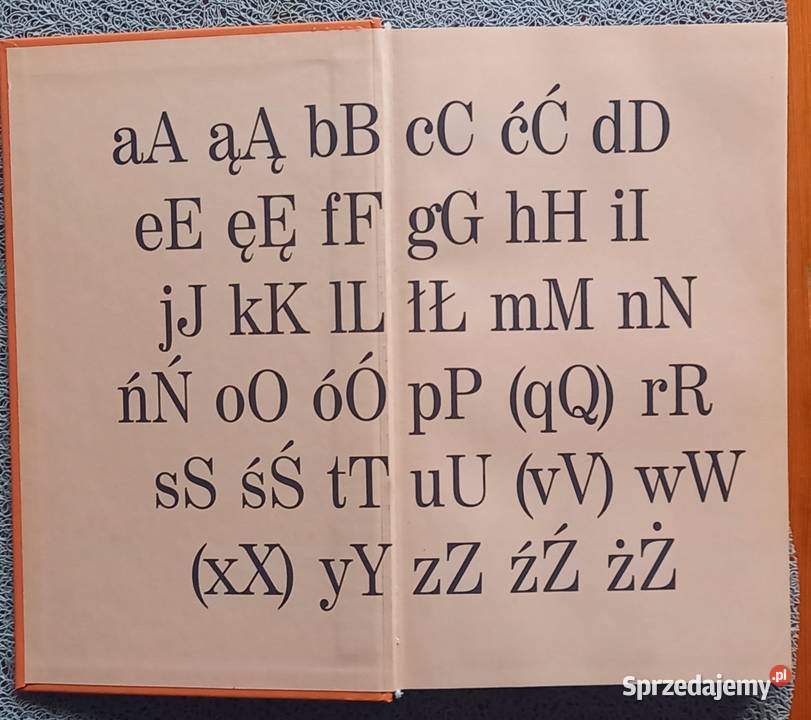 aA ąĄ bB cC ćĆ dD
eE ęĘ fF gG hH iI
jJ kK lL łŁ mM nN
ńŃ oO óÓ pP (qQ) rR
sS śŚ tT uU (vV) wW
(xX) yY zZ źŹ żŻ
Sprzedajemy.pl